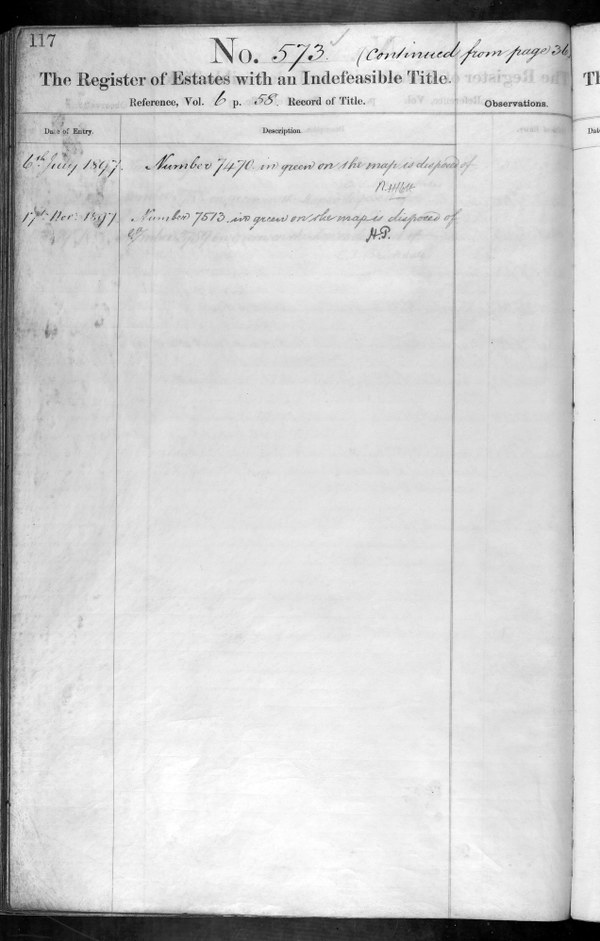 117
No. 573. (Continued from page 36
The Register of Estates with an Indefeasible Title.
Reference, Vol. 6 p. 58. Record of Title. Observations.
Date of Entry. Description.
6th July 1897. Number 7470 in green on the map is disposed of
17th Nov. 1897 Number 7513 in green on the map is disposed of
H.P.
Th
Date